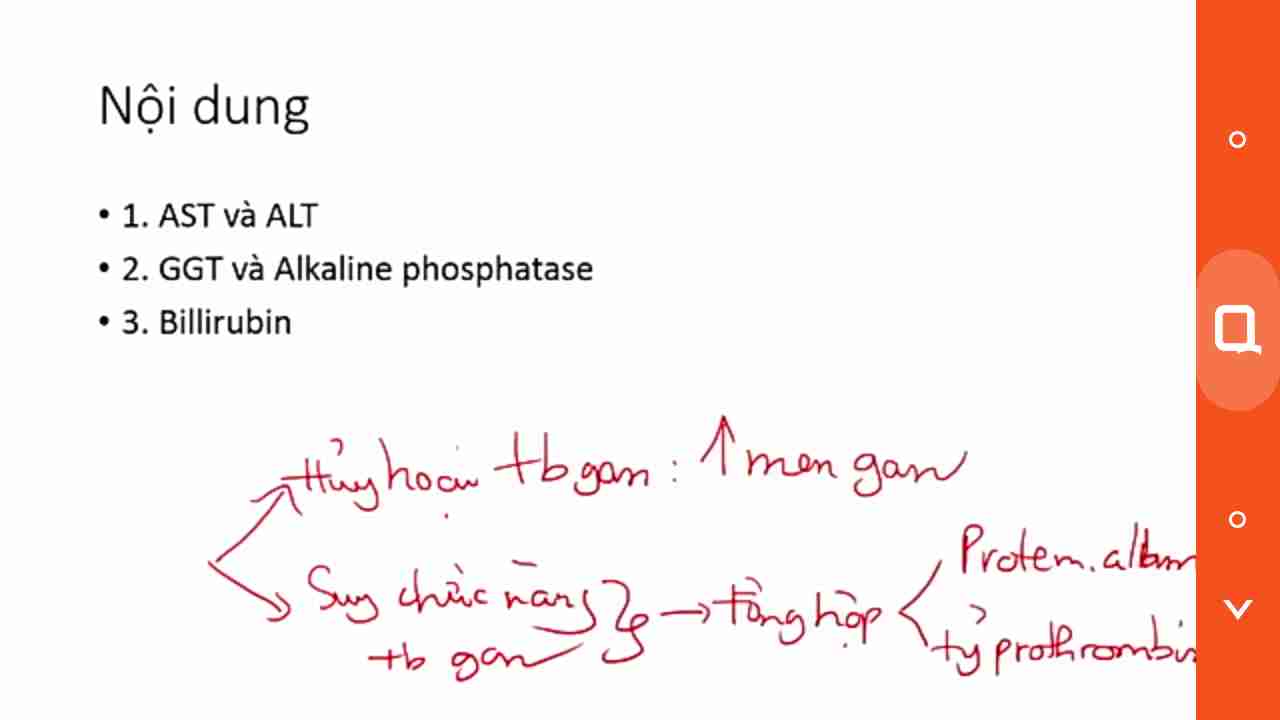 Nội dung
• 1. AST và ALT
• 2. GGT và Alkaline phosphatase
• 3. Billirubin
Hủy hoại tb gan : ↑ men gan
Suy chức năng
tb gan → tổng hợp
Protein. albumin
tỷ prothrombin